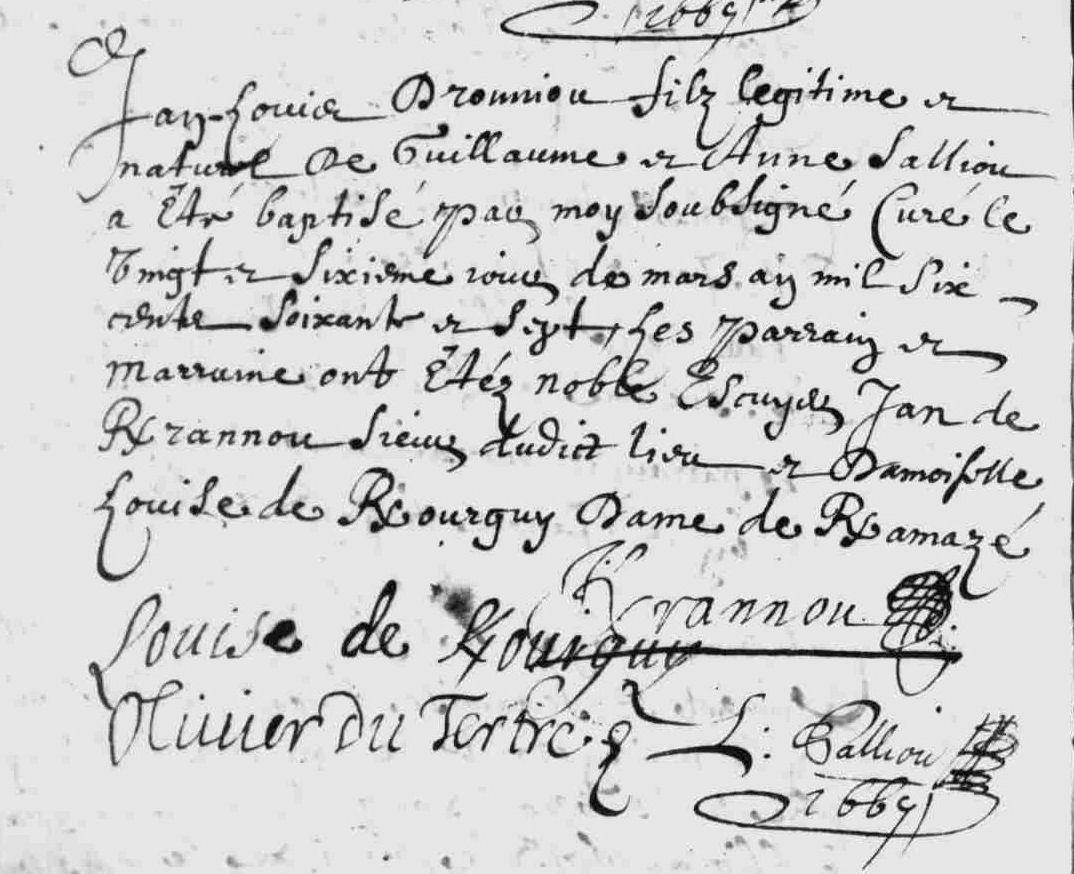 1667
Jan-Louis Drouniou filz legitime et
naturel De Guillaume et Anne Salliou
a Eté baptisé par moy Soubsigné Curé le
Vingt et Sixieme iour de mars an mil Six
cents Soixante et Sept, Les parrain et
Marraine ont Etéz noble Escuyer Jan de
K̵rannou Sieur dudict lieu et Damoiselle
Louise de K̵ourguy Dame de K̵amazé
K̵rannou
Louise de K̵ourguy
Olivier Du Tertre
L: Salliou
1667